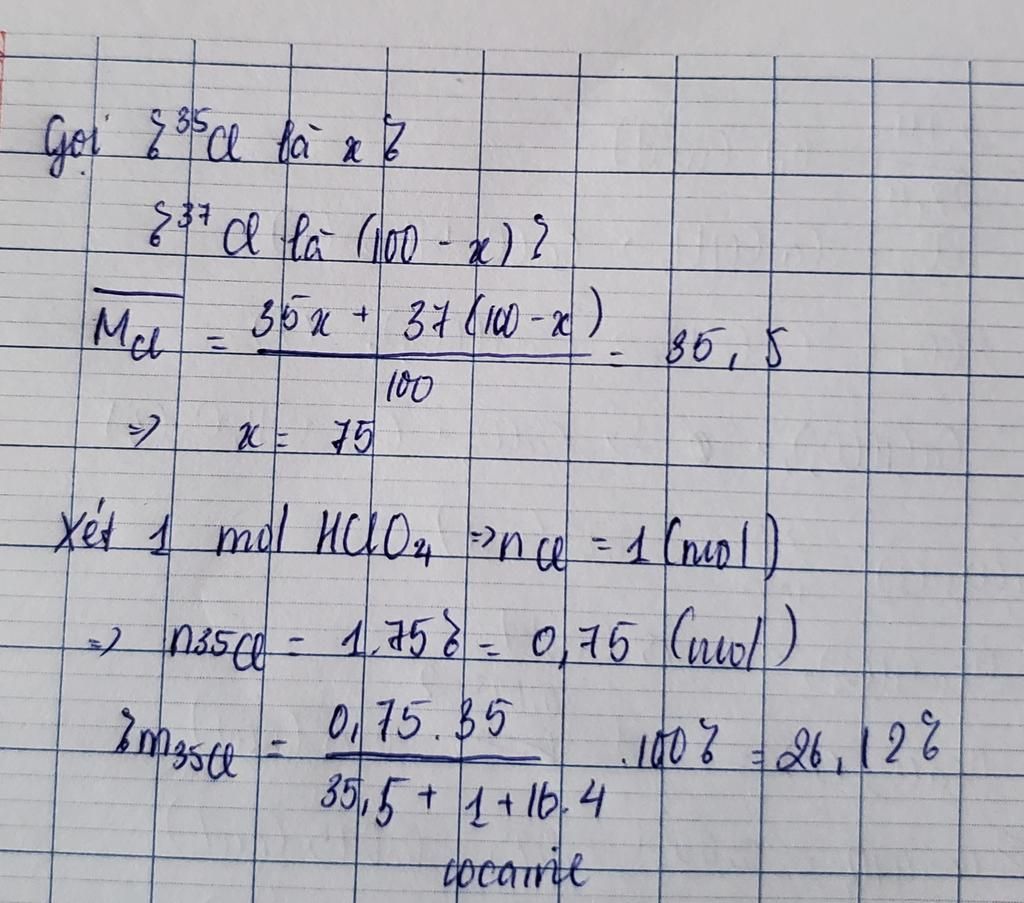 Gọi % ³⁵Cl là x %
% ³⁷Cl là (100 - x) %
M̅Cl = (35x + 37(100 - x)) / 100 = 35,5
=> x = 75
Xét 1 mol HClO₄ => nCl = 1 (mol)
=> n35Cl = 1.75% = 0,75 (mol)
%m35Cl = (0,75.35) / (35,5 + 1 + 16.4) .100% = 26,12%
cocamile